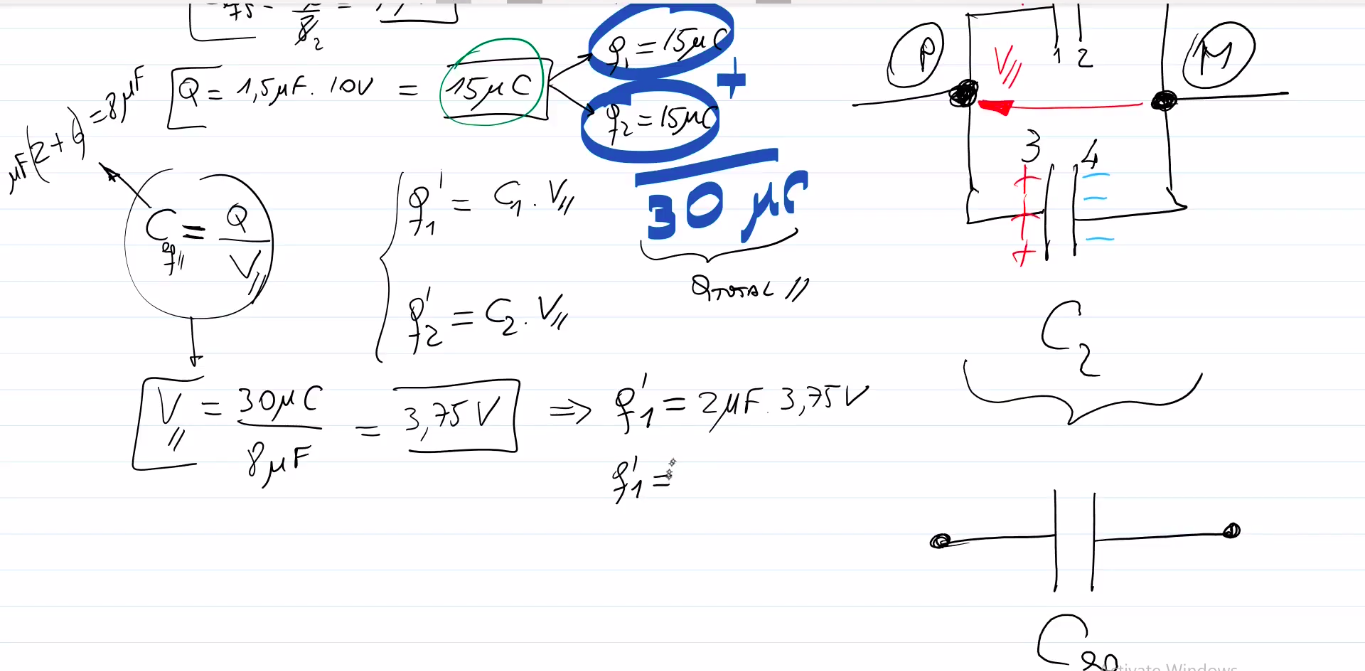 Q = 1,5μF . 10V = 15μC
q₁ = 15μC
+
q₂ = 15μC
30 μC
Q TOTAL //
μF(2+6) = 8μF
C eq // = Q / V//
q₁' = C₁ . V//
q₂' = C₂ . V//
V// = 30μC / 8μF = 3,75V ⇒ q₁' = 2μF . 3,75V
q₁' =
P
V//
1 2
M
3 4
+ + +
− − −
C₂
C eq